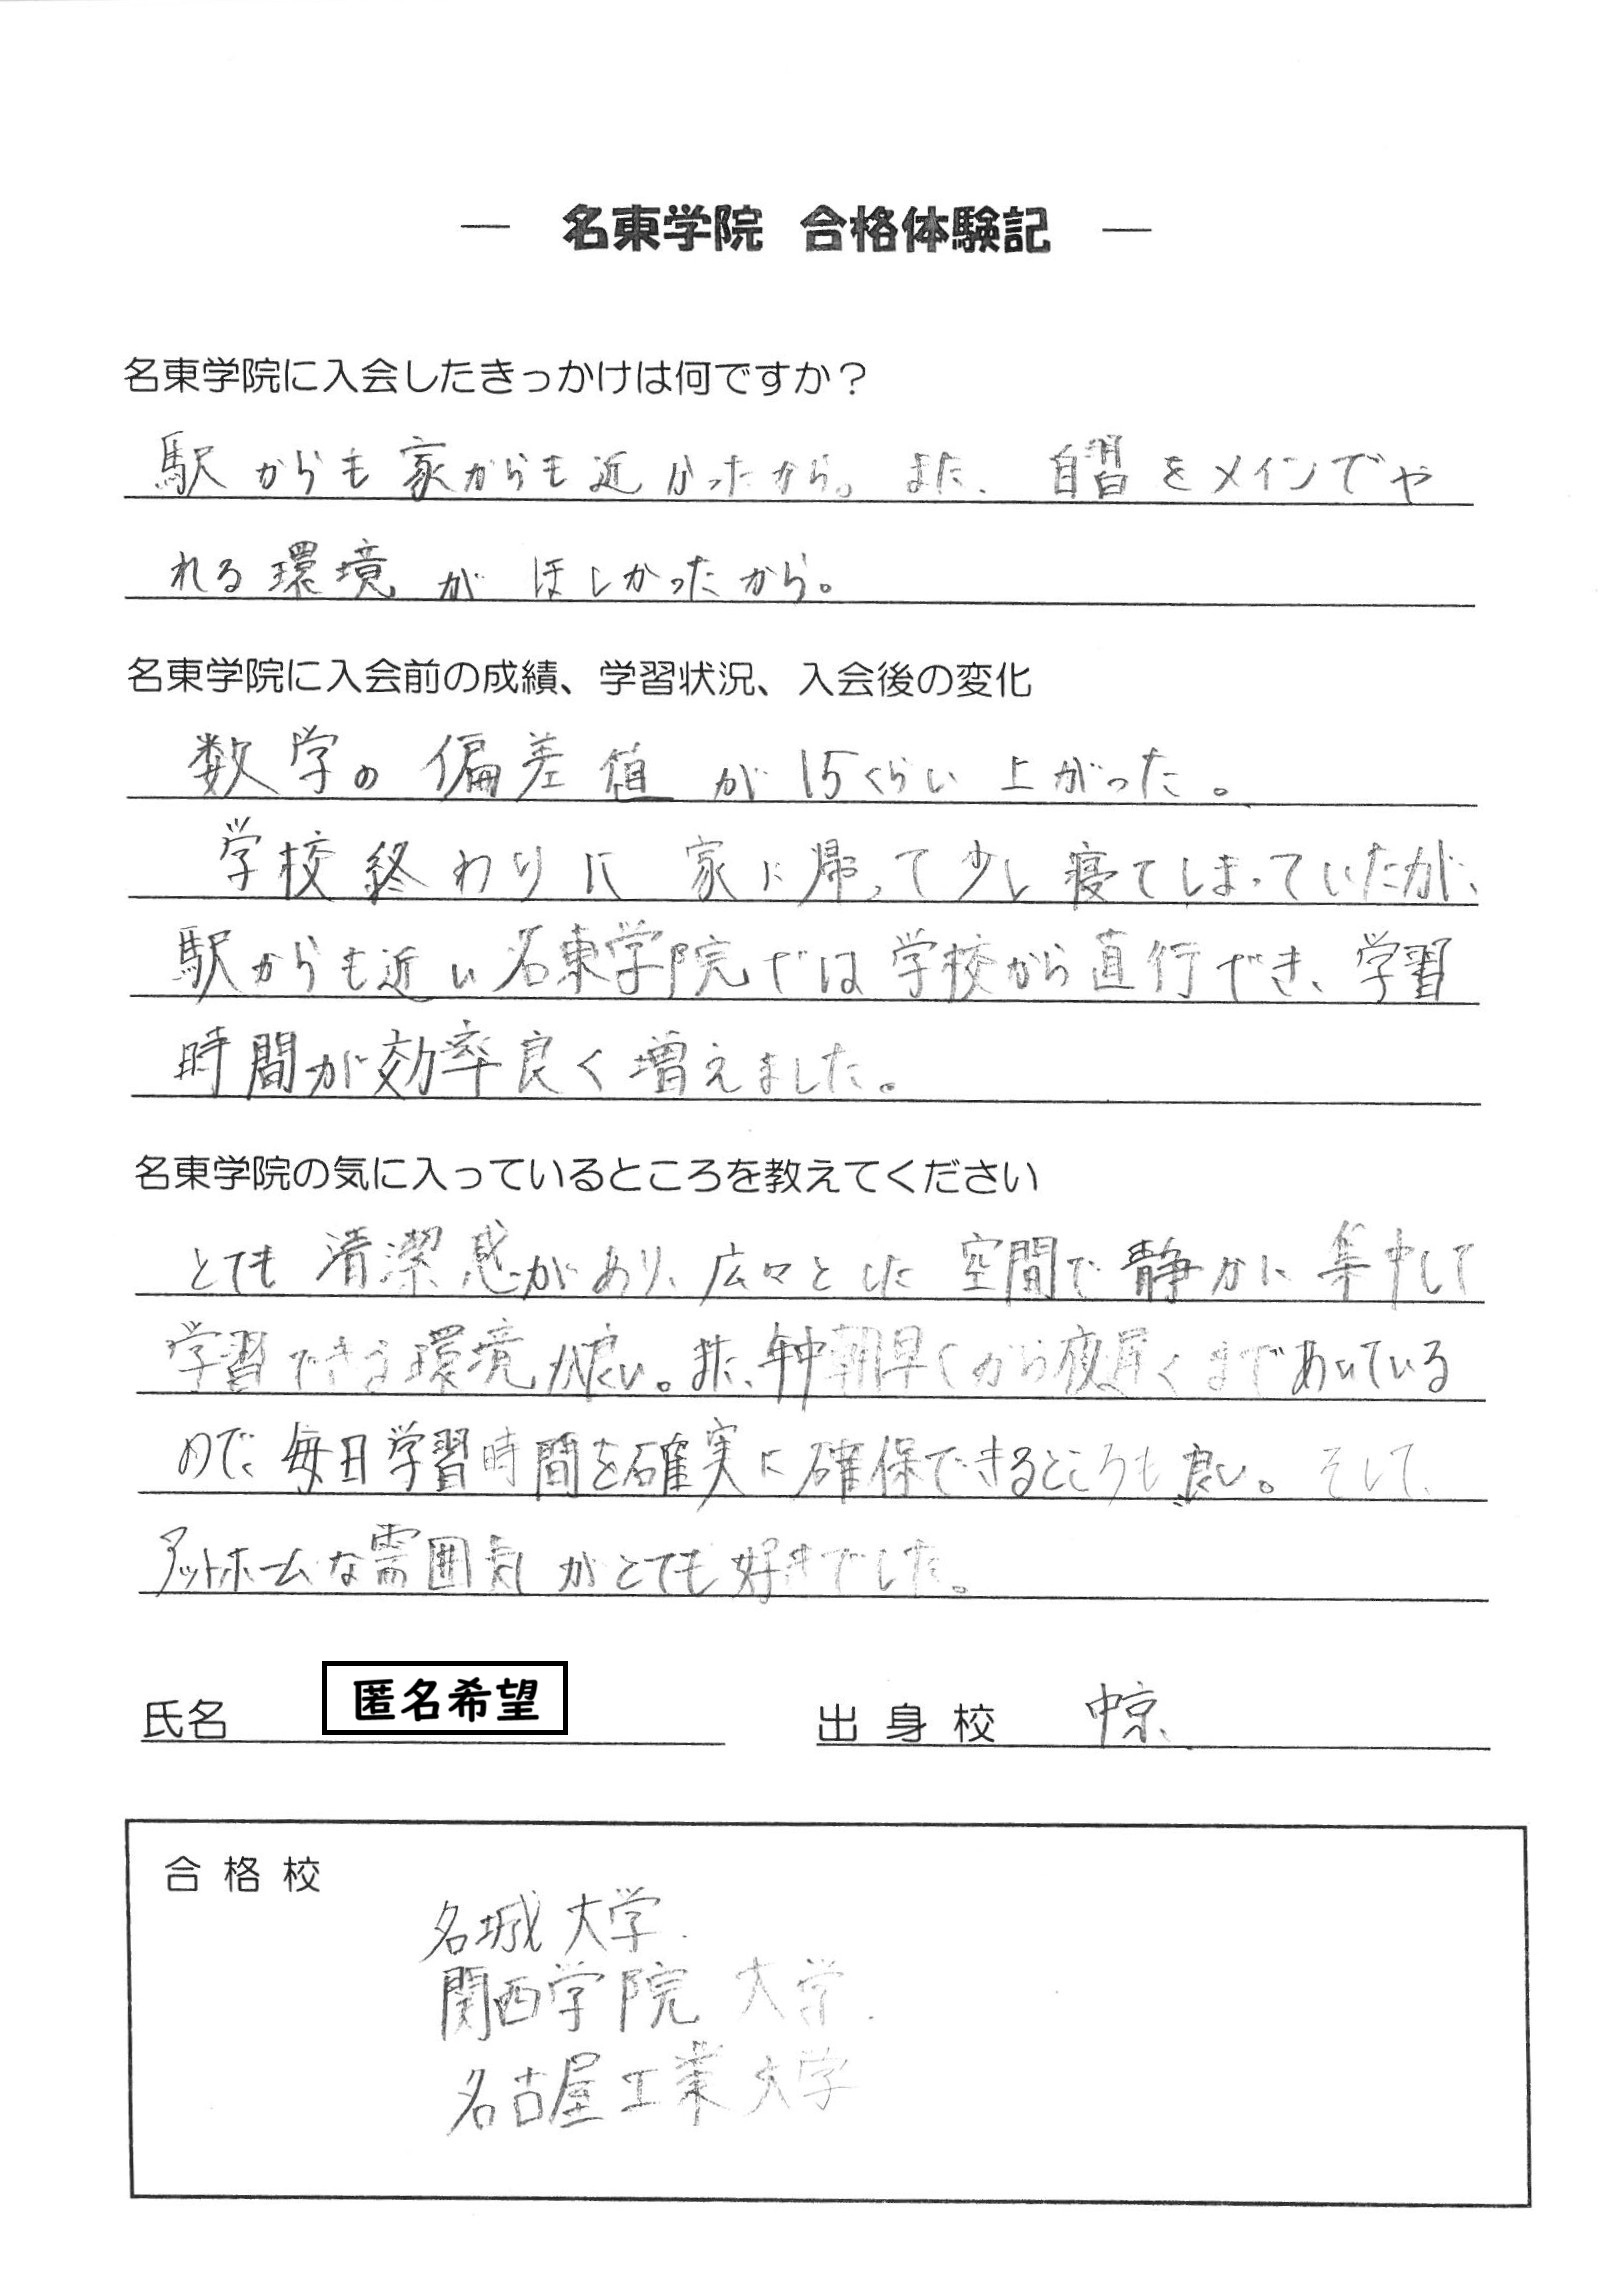 ― 名東学院 合格体験記 ―
名東学院に入会したきっかけは何ですか？
駅からも家からも近かったから。また、自習をメインでや
れる環境がほしかったから。
名東学院に入会前の成績、学習状況、入会後の変化
数学の偏差値が15くらい上がった。
学校終わりに家に帰って少し寝てしまっていたが、
駅からも近い名東学院では学校から直行でき、学習
時間が効率良く増えました。
名東学院の気に入っているところを教えてください
とても清潔感があり、広々とした空間で静かに集中して
学習できる環境が良い。また、年中朝早くから夜遅くまであいている
ので、毎日学習時間を確実に確保できるところも良い。そして、
アットホームな雰囲気がとても好きでした。
氏名 匿名希望 出身校 中京
合格校
名城大学
関西学院大学
名古屋工業大学